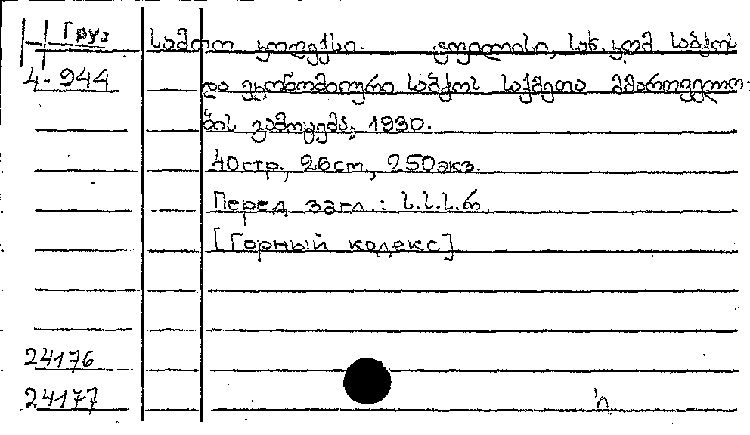 Груз
4-944
სამთო კოდექსი. ტფილისი, სახ. კომ. საბჭოს
და ეკონომიური საბჭოს საქმეთა მმართველო-
ბის გამოცემა, 1930.
40стр., 26cm., 250экз.
Перед загл.: ს.ს.ს.რ.
[Горный кодекс]
24176
24177